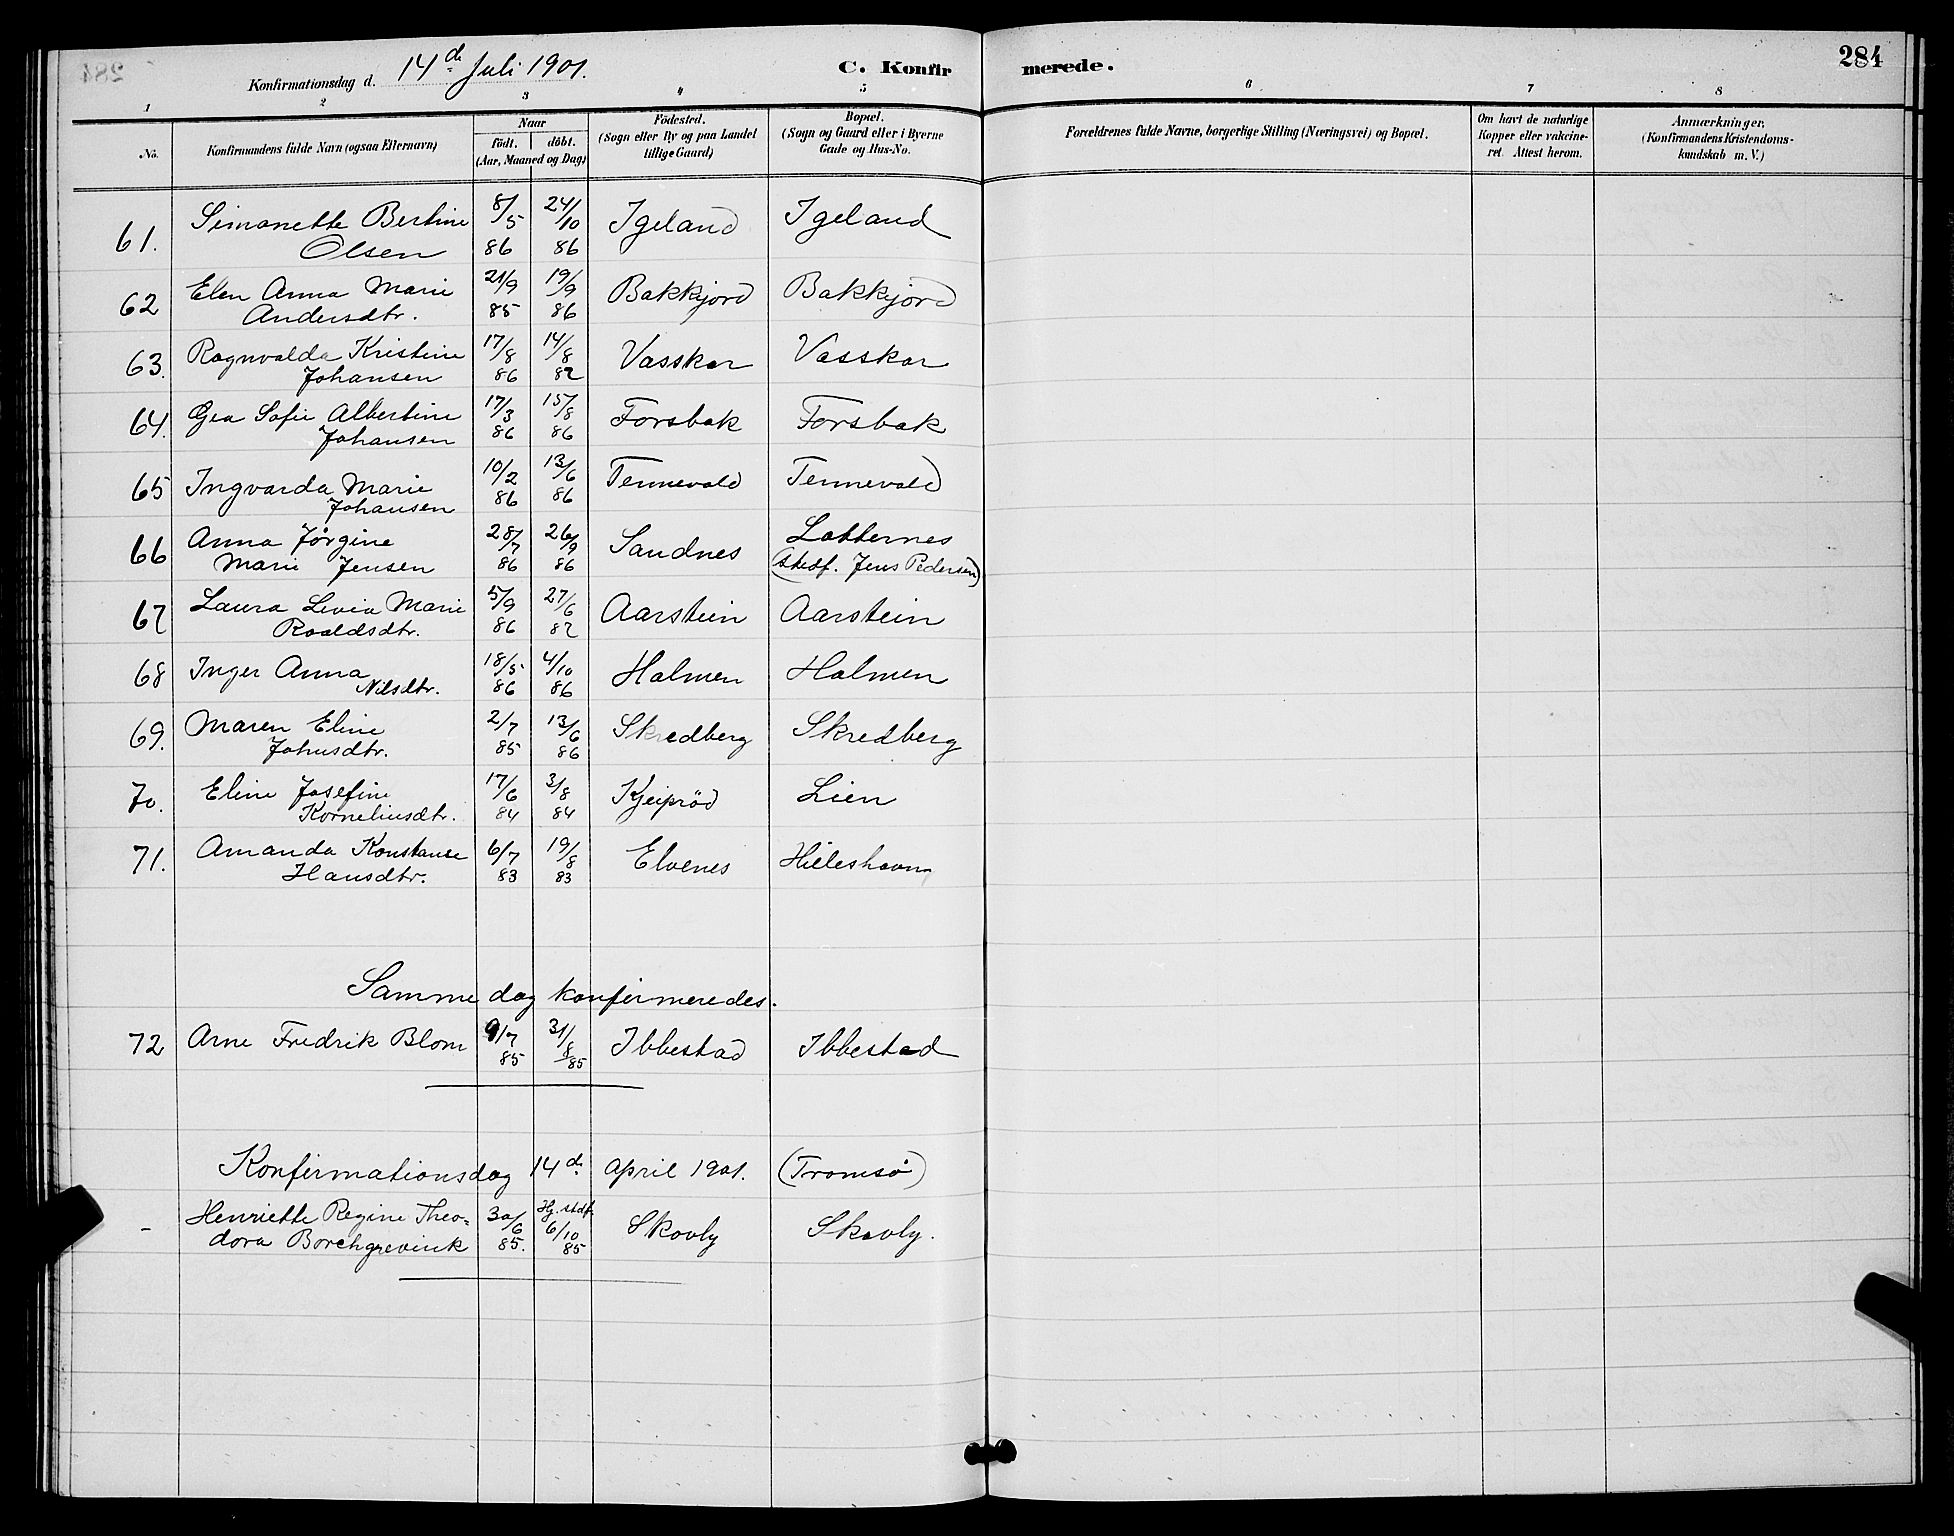 284
Konfirmationsdag d. 14de Juli 1901.
C. Konfirmerede.
1 2 3 4 5 6 7 8
No. Konfirmandens fulde Navn (ogsaa Efternavn) Naar födt. döbt. (Aar, Maaned og Dag) Födested. (Sogn eller By og paa Landet tillige Gaard) Bopæl. (Sogn og Gaard eller i Byerne Gade og Hus-No. Forældrenes fulde Navne, borgerlige Stilling (Næringsvei) og Bopæl. Om havt de naturlige Kopper eller vakcineret. Attest herom. Anmærkninger, (Konfirmandens Kristendomskundskab m. V.)
61. Simonette Bertine Olsen 8/5 86 24/10 86 Igeland Igeland
62 Elen Anna Marie Andersdtr. 21/9 85 19/9 86 Bakkjord Bakkjord
63. Ragnvalda Kristine Johansen 17/8 86 14/8 87 Vasskar Vasskar
64. Gea Sofie Albertine Johansen 17/3 86 15/8 86 Forsbak Forsbak
65 Ingvarda Marie Johansen 10/2 86 13/6 86 Tennevold Tennevold
66 Anna Jörgine Marie Jensen 28/7 86 26/9 86 Sandnes Lotternes (Stedf. Jens Pedersen)
67 Laura Livia Marie Roaldsdtr. 5/9 86 27/6 87 Aarstein Aarstein
68 Inger Anna Nilsdtr. 18/5 86 4/10 86 Holmen Holmen
69. Maren Eline Johnsdtr. 2/7 85 13/6 86 Skredberg Skredberg
70. Eline Josefine Korneliusdtr. 17/6 84 3/8 84 Kjeipröd Lien
71. Amanda Konstanse Hansdtr. 6/7 83 19/8 83 Elvenes Hilleshavn
Samme dag konfirmeredes.
72 Arne Fredrik Blom 9/7 85 31/8 85 Ibbestad Ibbestad
Konfirmationsdag 14de April 1901. (Tromsö)
- Henriette Regine Theodora Borchgrevink 30/6 85. Hj. stdf. 6/10 85 Skovly Skovly.